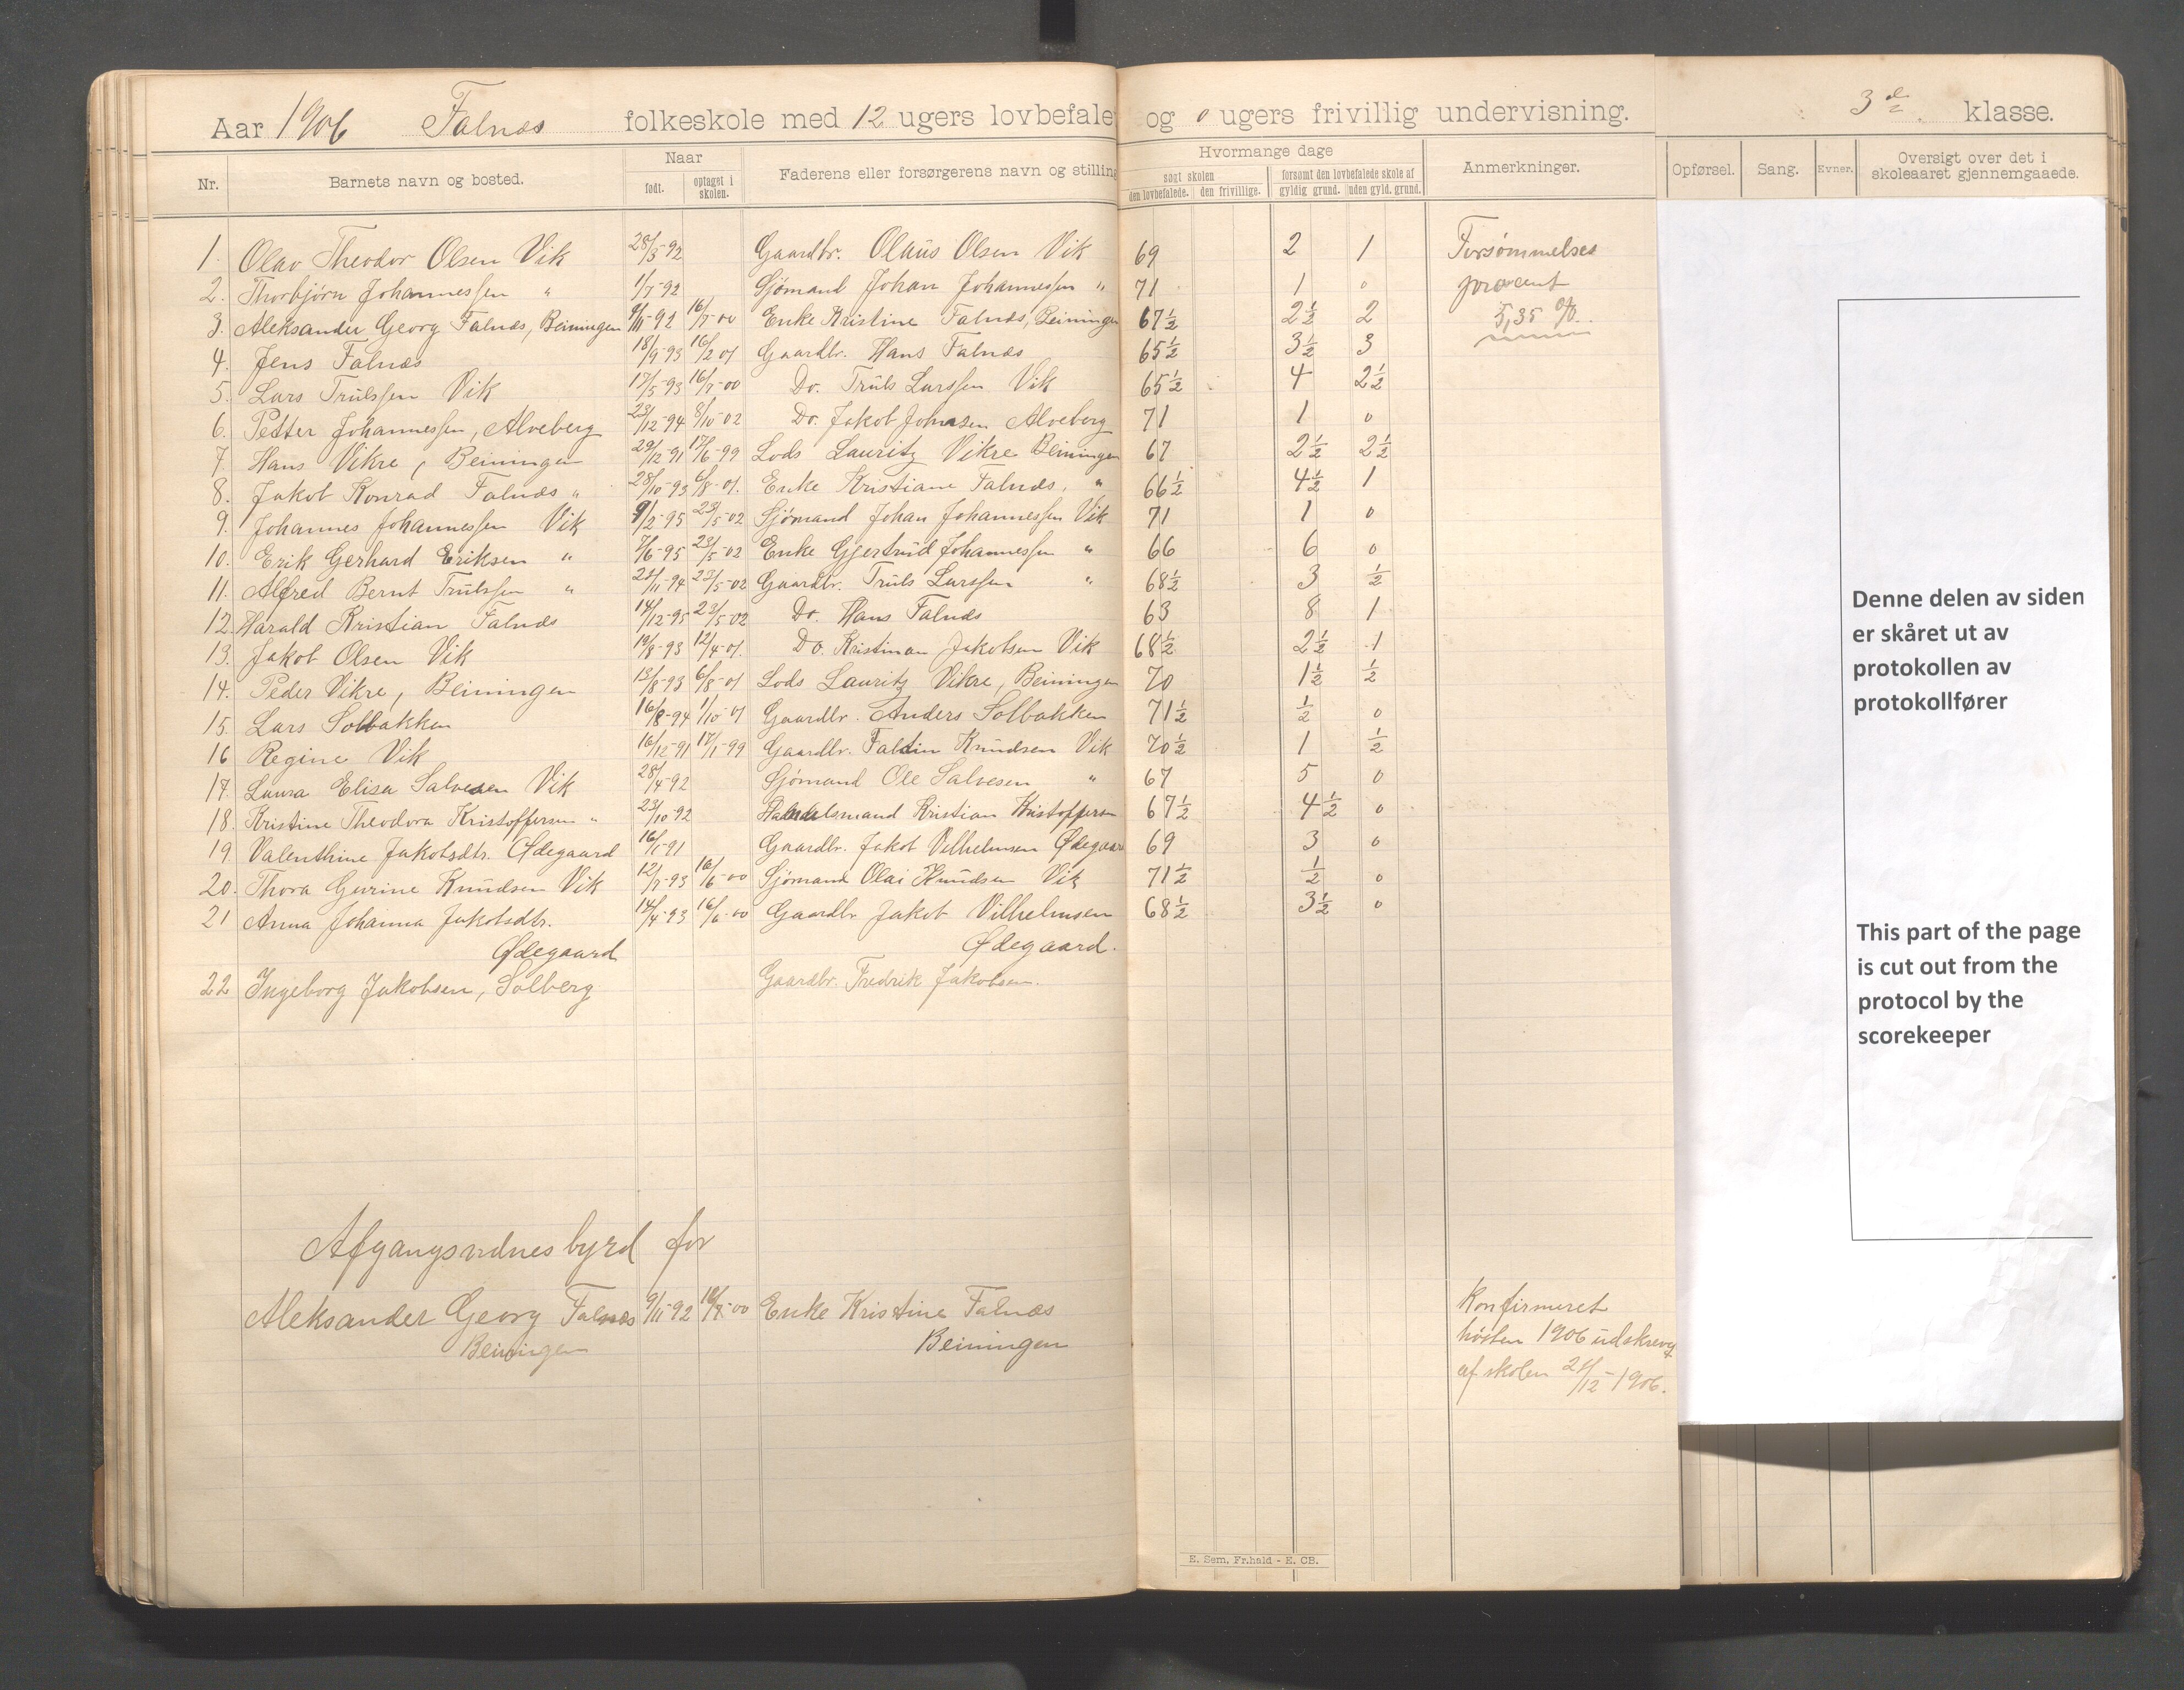 Aar 1906 Falnes folkeskole med 12 ugers lovbefale og 0 ugers frivillig undervisning. 3de klasse.
Nr. Barnets navn og bosted. Naar født. optaget i skolen. Faderens eller forsørgerens navn og stilling Hvormange dage søgt skolen den lovbefalede. den frivillige. forsømt den lovbefalede skole af gyldig grund. uden gyld. grund. Anmerkninger. Opførsel. Sang. Evner. Oversigt over det i skoleaaret gjennemgaaede.
1. Olav Theodor Olsen Vik 28/3-92 Gaardbr. Olaus Olsen Vik 69 2 1 Forsømmelses
2. Thorbjørn Johannessen " 1/7-92 Sjømand Johan Johannessen " 71 1 0 procent
3. Aleksander Georg Falnes, Beiningen 9/11-92 16/7-00 Enke Kristine Falnes, Beiningen 67½ 2½ 2 5,35 %
4. Jens Falnes 18/9-93 16/2 01 Gaardbr. Hans Falnes 65½ 3½ 3
5. Lars Trulssen Vik 17/5-93 16/7-00 Do. Truls Larssen Vik 65½ 4 2½
6. Petter Johannessen, Alveberg 23/12-94 8/10-02 Do. Jakob Johnsen Alveberg 71 1 0
7. Hans Vikre, Beiningen 29/12-91 17/6-99 Lods Lauritz Vikre Beiningen 67 2½ 2½
8. Jakob Konrad Falnes " 28/10-93 6/8-01. Enke Kristiane Falnes. " 66½ 4½ 1
9. Johannes Johannessen Vik 9/2-95 23/5-02 Sjømand Johan Johannessen Vik 71 1 0
10. Erik Gerhard Eriksen " 7/6-95 23/5-02 Enke Gjertrud Johannessen " 66 6 0
11. Alfred Bernt Trulssen " 21/11-94 23/5-02 Gaardbr. Truls Larssen " 68½ 3 ½
12. Harald Kristian Falnes 14/12-95 23/5-02 Do. Hans Falnes 63 8 1
13. Jakob Olsen Vik 19/8-93 12/4-01. Do. Kristian Jakobsen Vik 68½ 2½ 1
14. Peder Vikre, Beiningen 13/8-93 6/8-01 Lods Lauritz Vikre, Beiningen 70 1½ ½
15. Lars Solbakken 16/8-94 1/10-01 Gaardbr. Anders Solbakken 71½ ½ 0
16 Regine Vik 16/12-91 17/1-99 Gaardbr. Faltin Knudsen Vik 70½ 1 ½
17. Laura Elisa Salvesen Vik 28/4-92 Sjømand Ole Salvesen " 67 5 0
18. Kristine Theodora Kristoffersen " 23/10-92 Handelsmand Kristian Kristoffersen 67½ 4½ 0
19 Valenthine Jakobsdtr. Ødegaard 16/1-91 Gaardbr. Jakob Vilhelmsen Ødegaar 69 3 0
20. Thora Gurine Knudsen Vik 12/7-93 16/6-00 Sjømand Olai Knudsen Vik 71½ ½ 0
21 Anna Johanna Jakobsdtr. 14/4-93 16/6-00 Gaardbr Jakob Vilhelmsen 68½ 3½ 0
Ødegaard Ødegaard.
22 Ingeborg Jakobsen, Solberg Gaardbr. Fredrik Jakobsen.
Afgangsvidnesbyrd for
Aleksander Georg Falnes 9/11-92 16/7-00 Enke Kristine Falnes Konfirmeret
Beiningen Beiningen høsten 1906 udskrevet
af skolen 21/12-1906.
E. Sem, Fr.hald - E. CB.
Denne delen av siden
er skåret ut av
protokollen av
protokollfører
This part of the page
is cut out from the
protocol by the
scorekeeper